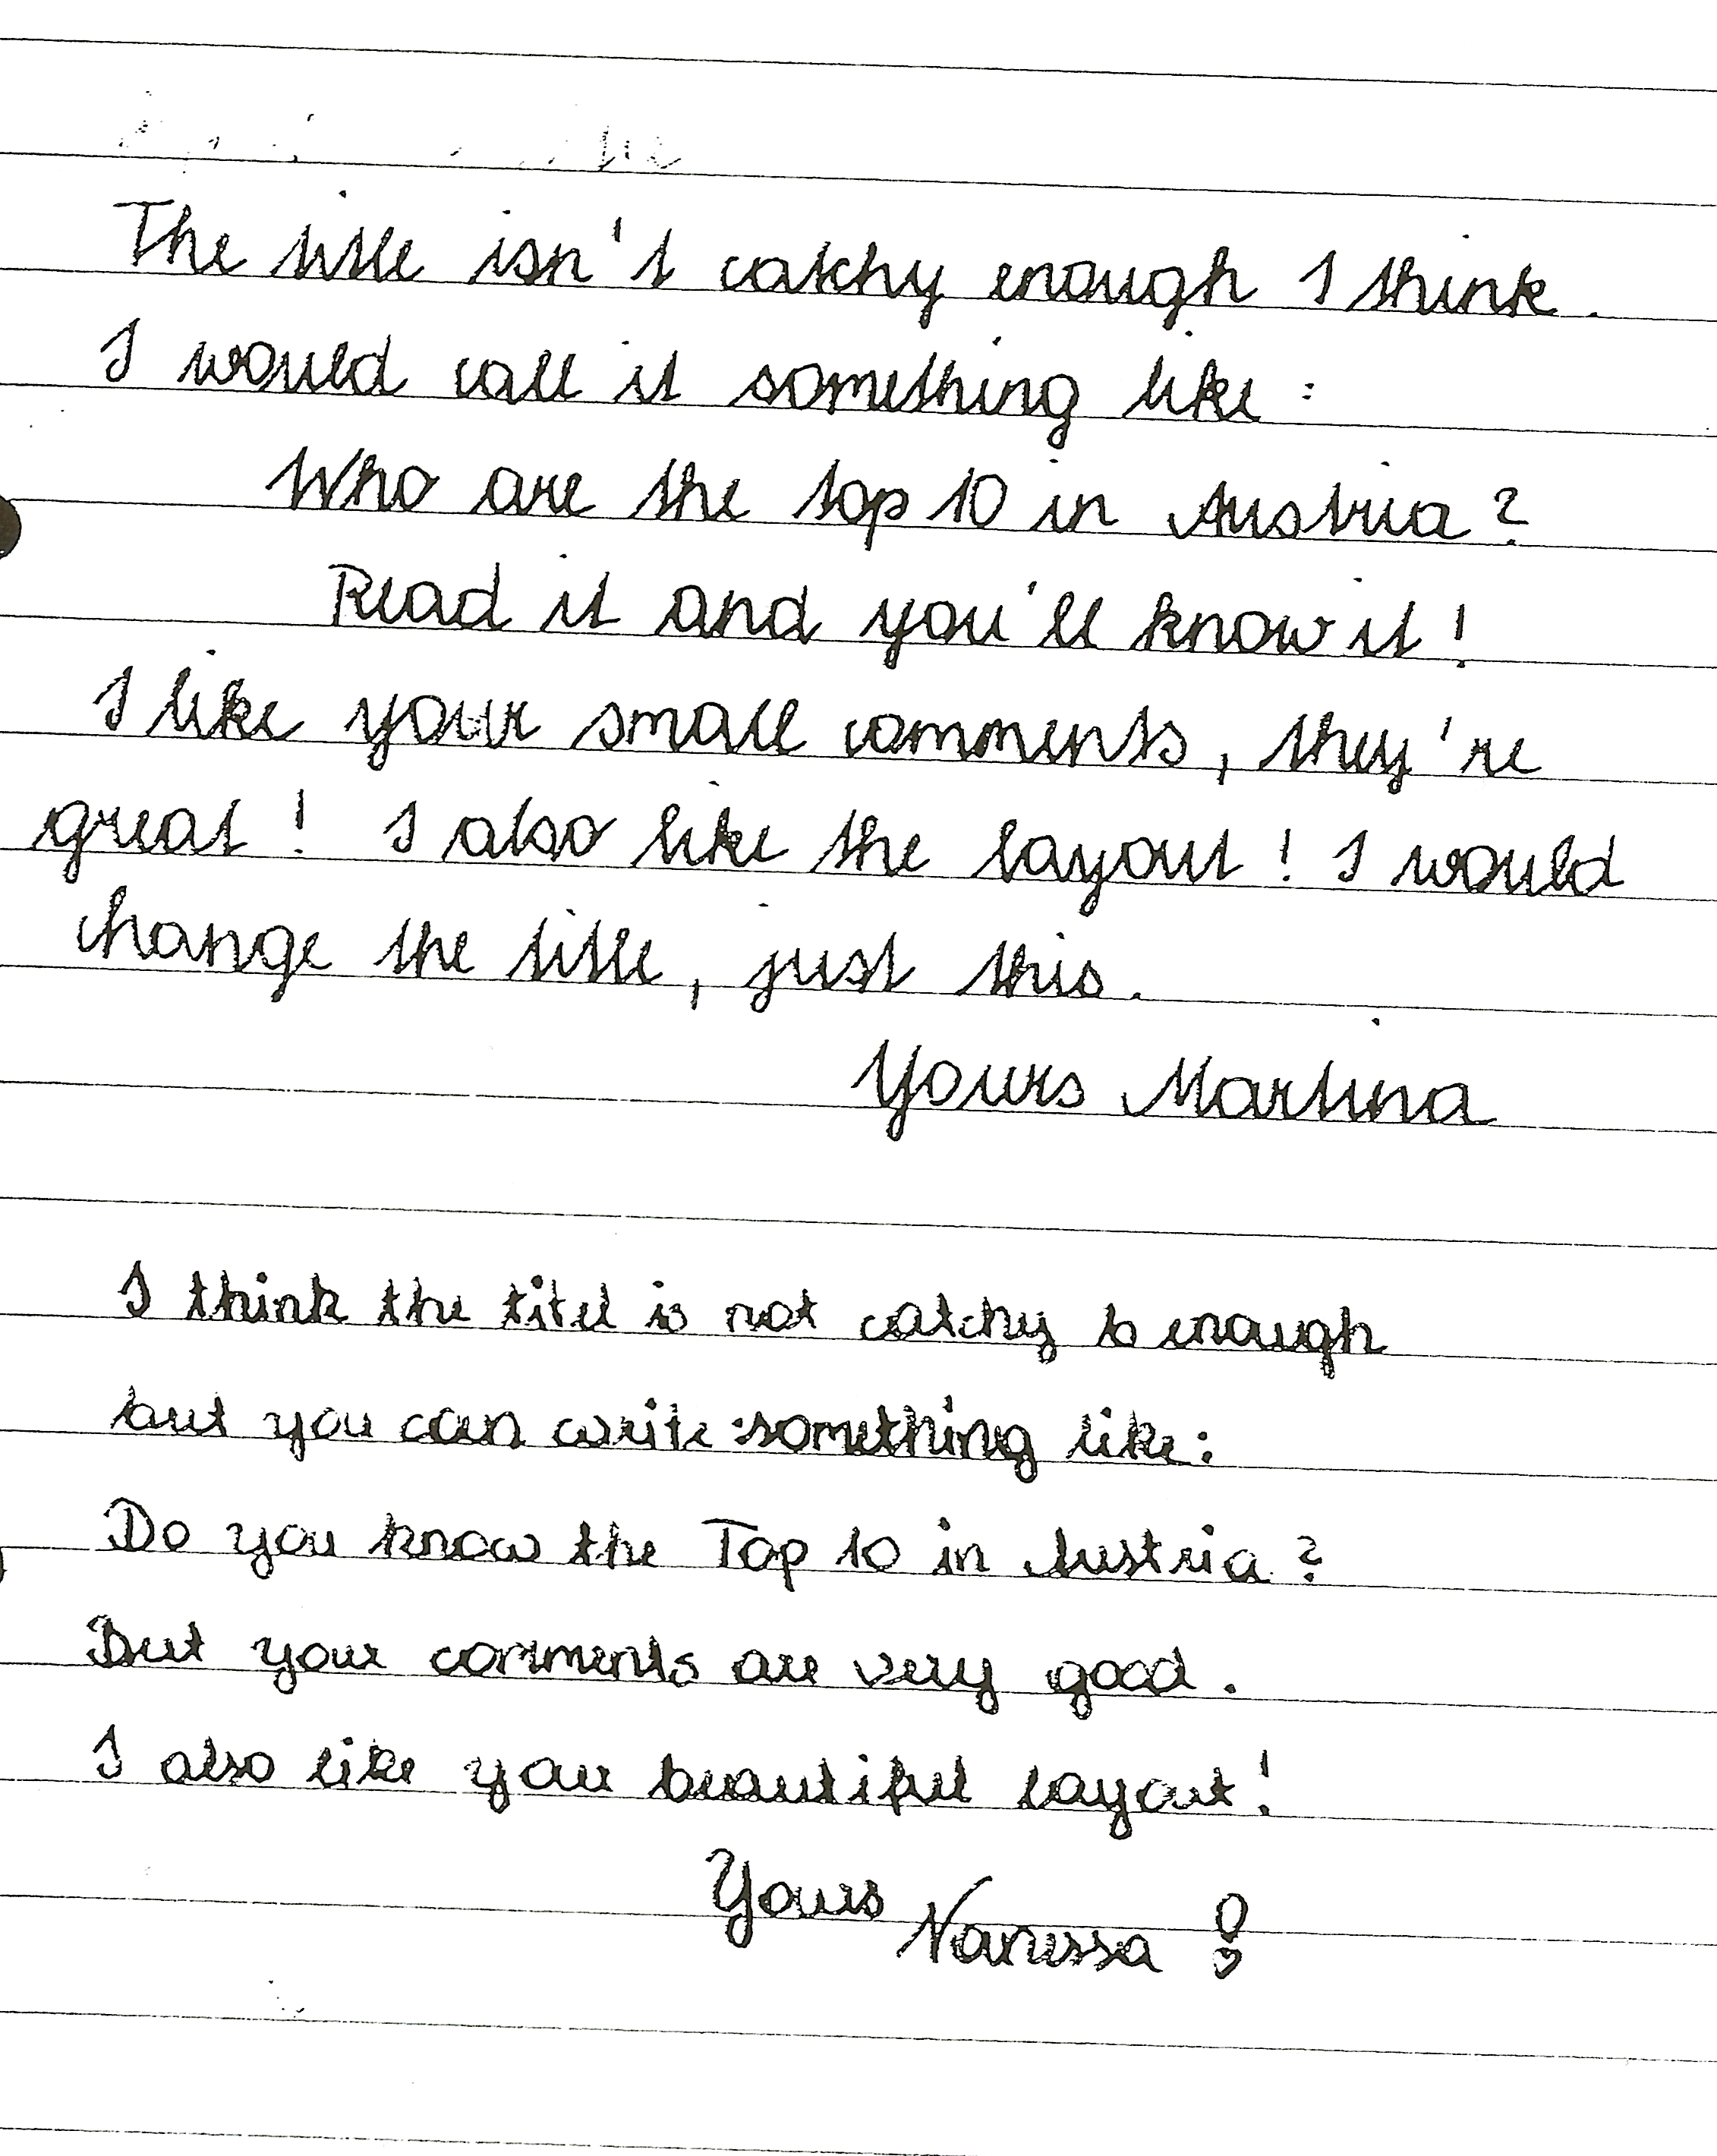 The title isn't catchy enough I think.
I would call it something like:
Who are the top 10 in Austria?
Read it and you'll know it!
I like your small comments, they're
great! I also like the layout! I would
change the title, just this.
Yours Martina
I think the titel is not catchy enough
but you can write something like:
Do you know the Top 10 in Austria?
But your comments are very good.
I also like your beautiful layout!
Yours
Vanessa!